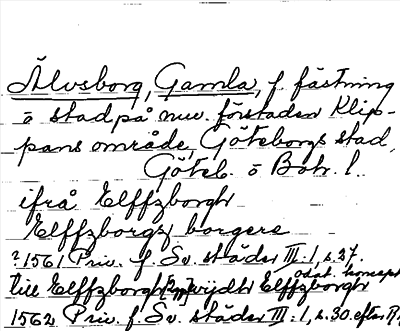 Älvsborg, Gamla, f fästning
o stad på nuv. förstaden Klip-
pans område, Göteborgs stad,
Göteb. o Boh. l.
ifrå Elffzborgh
Elffzborgz borgere
?1561 Priv. f. Sv. städer III:1, s.27.
odat. koncept
till Elffzborgh widh Elffzborgh
1562 Priv. f. Sv. städer III:1, s.30. efter R.